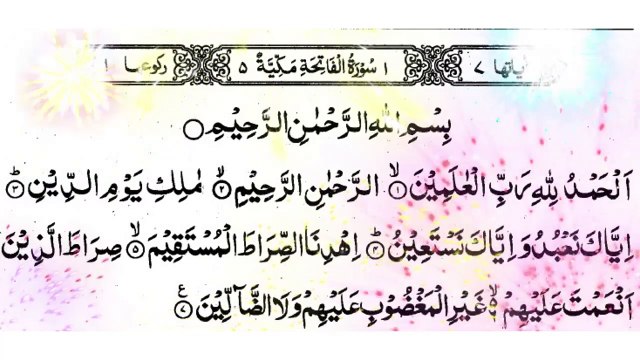 اٰیاتھا ۷ ۱ سُوْرَةُ الْفَاتِحَةِ مَکِّیَّةٌ ۵ رکوعھا ۱
بِسْمِ اللّٰهِ الرَّحْمٰنِ الرَّحِیْمِ ○
اَلْحَمْدُ لِلّٰهِ رَبِّ الْعٰلَمِیْنَ ۙ﴿۱﴾ الرَّحْمٰنِ الرَّحِیْمِ ۙ﴿۲﴾ مٰلِكِ یَوْمِ الدِّیْنِ ؕ﴿۳﴾
اِیَّاكَ نَعْبُدُ وَ اِیَّاكَ نَسْتَعِیْنُ ؕ﴿۴﴾ اِهْدِنَا الصِّرَاطَ الْمُسْتَقِیْمَ ۙ﴿۵﴾ صِرَاطَ الَّذِیْنَ
اَنْعَمْتَ عَلَیْهِمْ ۙ۬﴿۶﴾ غَیْرِ الْمَغْضُوْبِ عَلَیْهِمْ وَلَا الضَّآلِّیْنَ ﴿۷﴾ ع